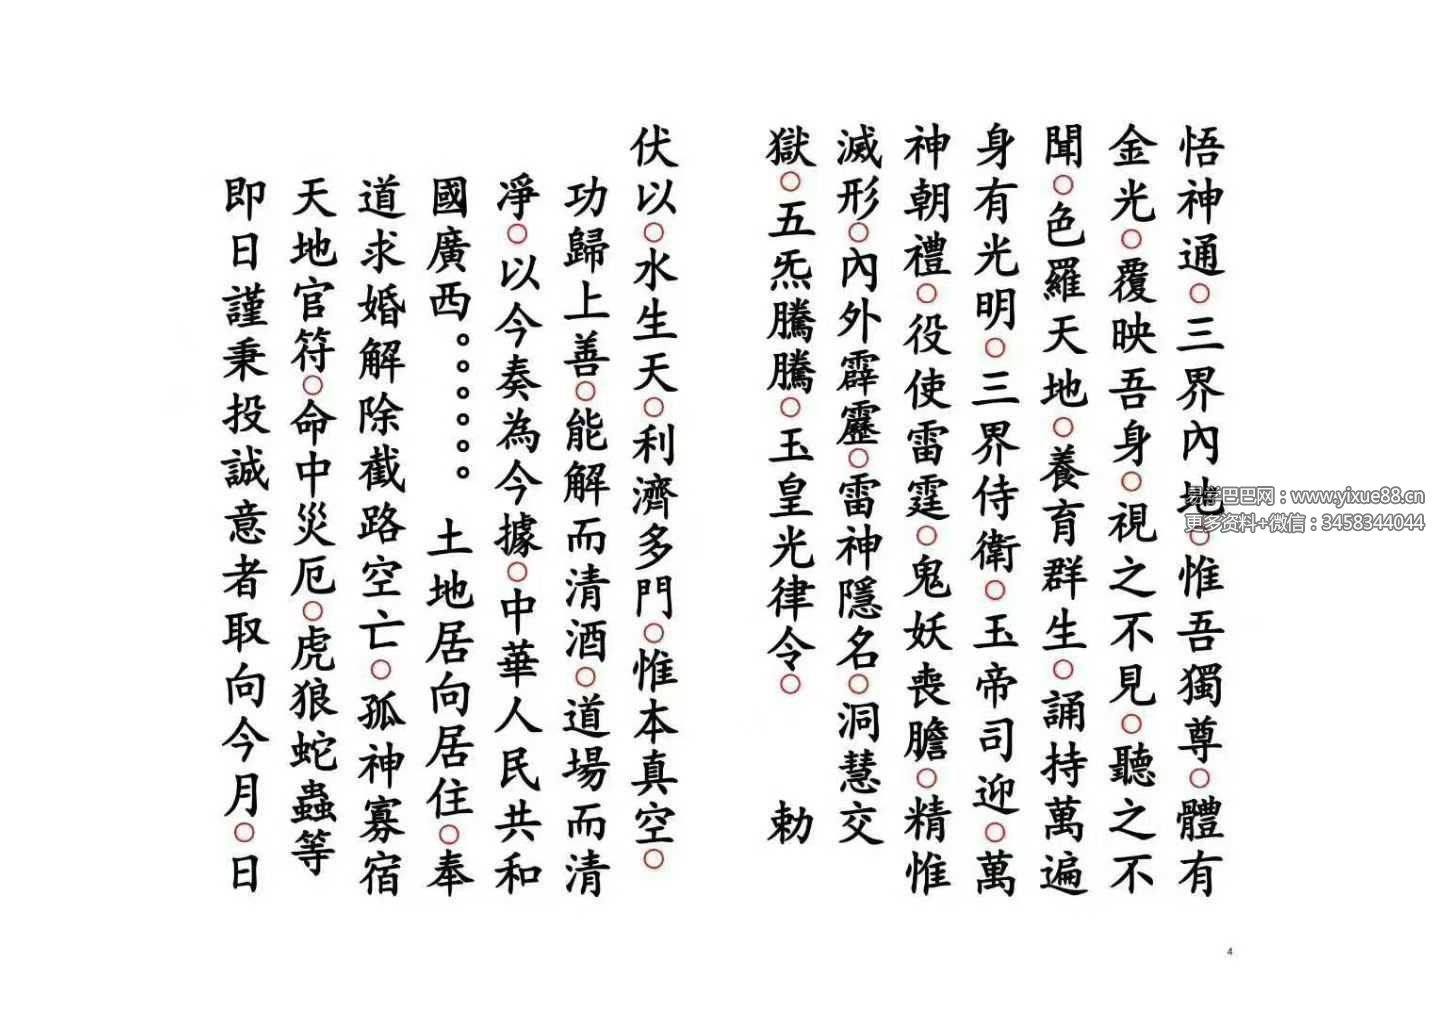 悟神通○三界內地○惟吾獨尊○體有
金光○覆映吾身○視之不見○聽之不
聞○色羅天地○養育群生○誦持萬遍
身有光明○三界侍衛○玉帝司迎○萬
神朝禮○役使雷霆○鬼妖喪膽○精惟
滅形○內外霹靂○雷神隱名○洞慧交
獄○五炁騰騰○玉皇光律令○ 勅
伏以○水生天○利濟多門○惟本真空○
功歸上善○能解而清酒○道場而清
凈○以今奏為今據○中華人民共和
國廣西。。。。。。 土地居向居住○奉
道求婚解除截路空亡○孤神寡宿
天地官符○命中災厄○虎狼蛇蟲等
即日謹秉投誠意者取向今月○日
易学巴巴网：www.yixue88.cn
更多资料+微信：3458344044
4